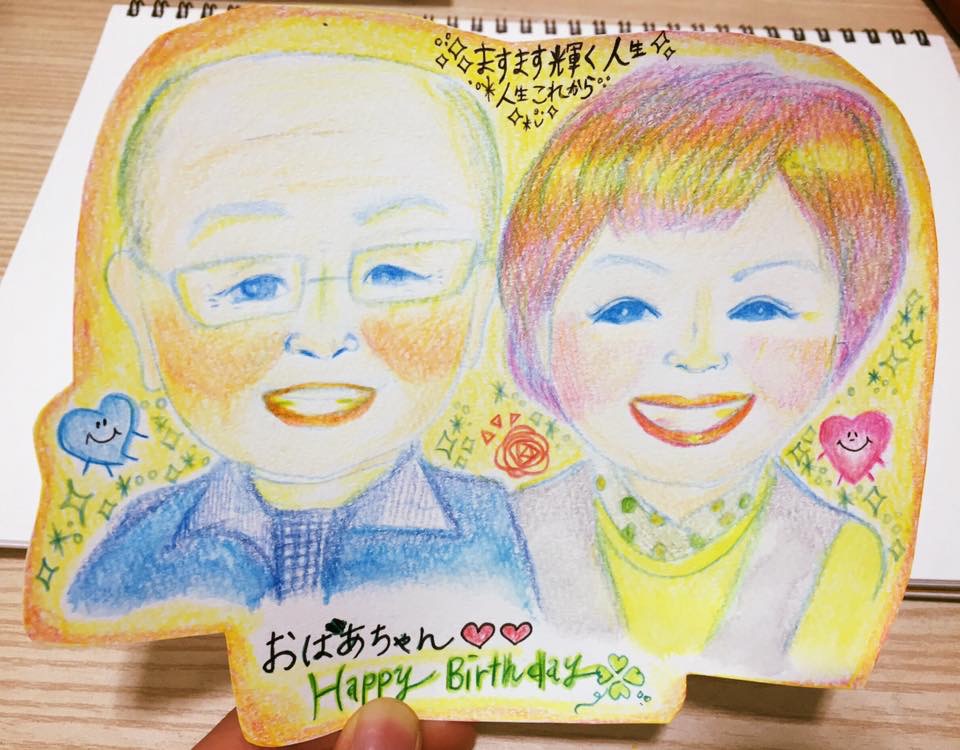 ますます輝く人生
人生これから
おばあちゃん
Happy Birthday